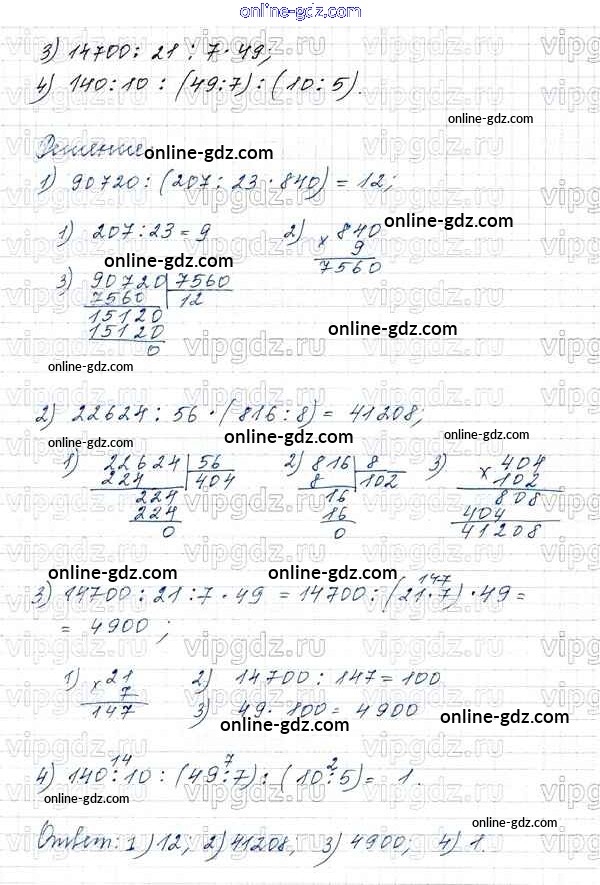 online-gdz.com
3) 14700 : 21 : 7 · 49;
4) 140 : 10 : (49 : 7) : (10 : 5).
online-gdz.com
Решение
online-gdz.com
1) 90720 : (207 : 23 · 840) = 12;
1) 207 : 23 = 9 2) × 840
online-gdz.com
9
7560
online-gdz.com
3) 90720 | 7560
7560 12
15120
15120
0
online-gdz.com
online-gdz.com
2) 22624 : 56 · (816 : 8) = 41208;
online-gdz.com
online-gdz.com
1) 22624 | 56 2) 816 | 8 3) × 404
224 404 8 102 102
224 16 808
224 16 404
0 0 41208
online-gdz.com online-gdz.com
147
3) 14700 : 21 : 7 · 49 = 14700 : (21 · 7) · 49 =
= 4900;
1) × 21 2) 14700 : 147 = 100
7 3) 49 · 100 = 4900
147
online-gdz.com
online-gdz.com
14 7 2
4) 140 : 10 : (49 : 7) : (10 : 5) = 1.
online-gdz.com
online-gdz.com
Ответ: 1) 12; 2) 41208; 3) 4900; 4) 1.
online-gdz.com
vipgdz.ru